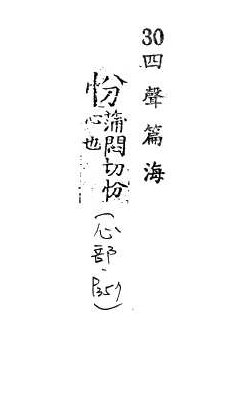 30四聲篇海
忿蒲悶切忿
心也
(心部,P357)